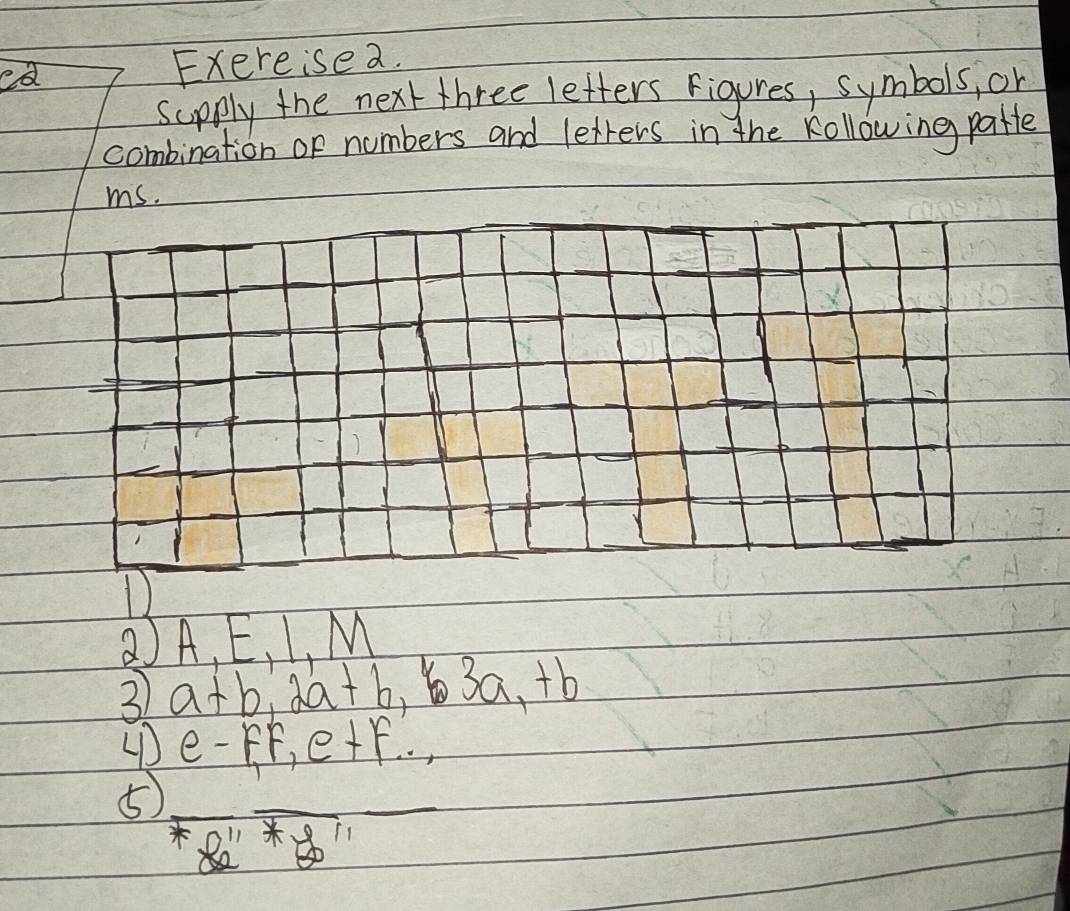 ed
Exereise 2.
Supply the next three letters figures, symbols, or
combination of numbers and letters in the following patte
ms.
1)
2) A, E, I, M
3) a+b, 2a+b, 3a, +b
4) e-f, F, e+F..,
5)
* & " * & "